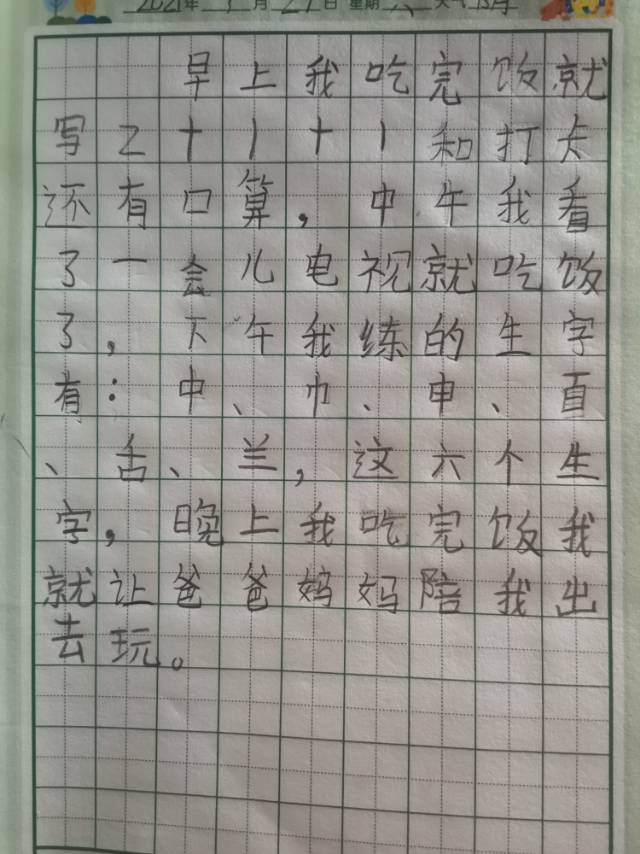 2021年 月 日 星期六 天气
早上我吃完饭就
写乙十丨十丨和打卡
还有口算，中午我看
了一会儿电视就吃饭
了，下午我练的生字
有：中、巾、申、直
、舌、兰，这六个生
字，晚上我吃完饭我
就让爸爸妈妈陪我出
去玩。